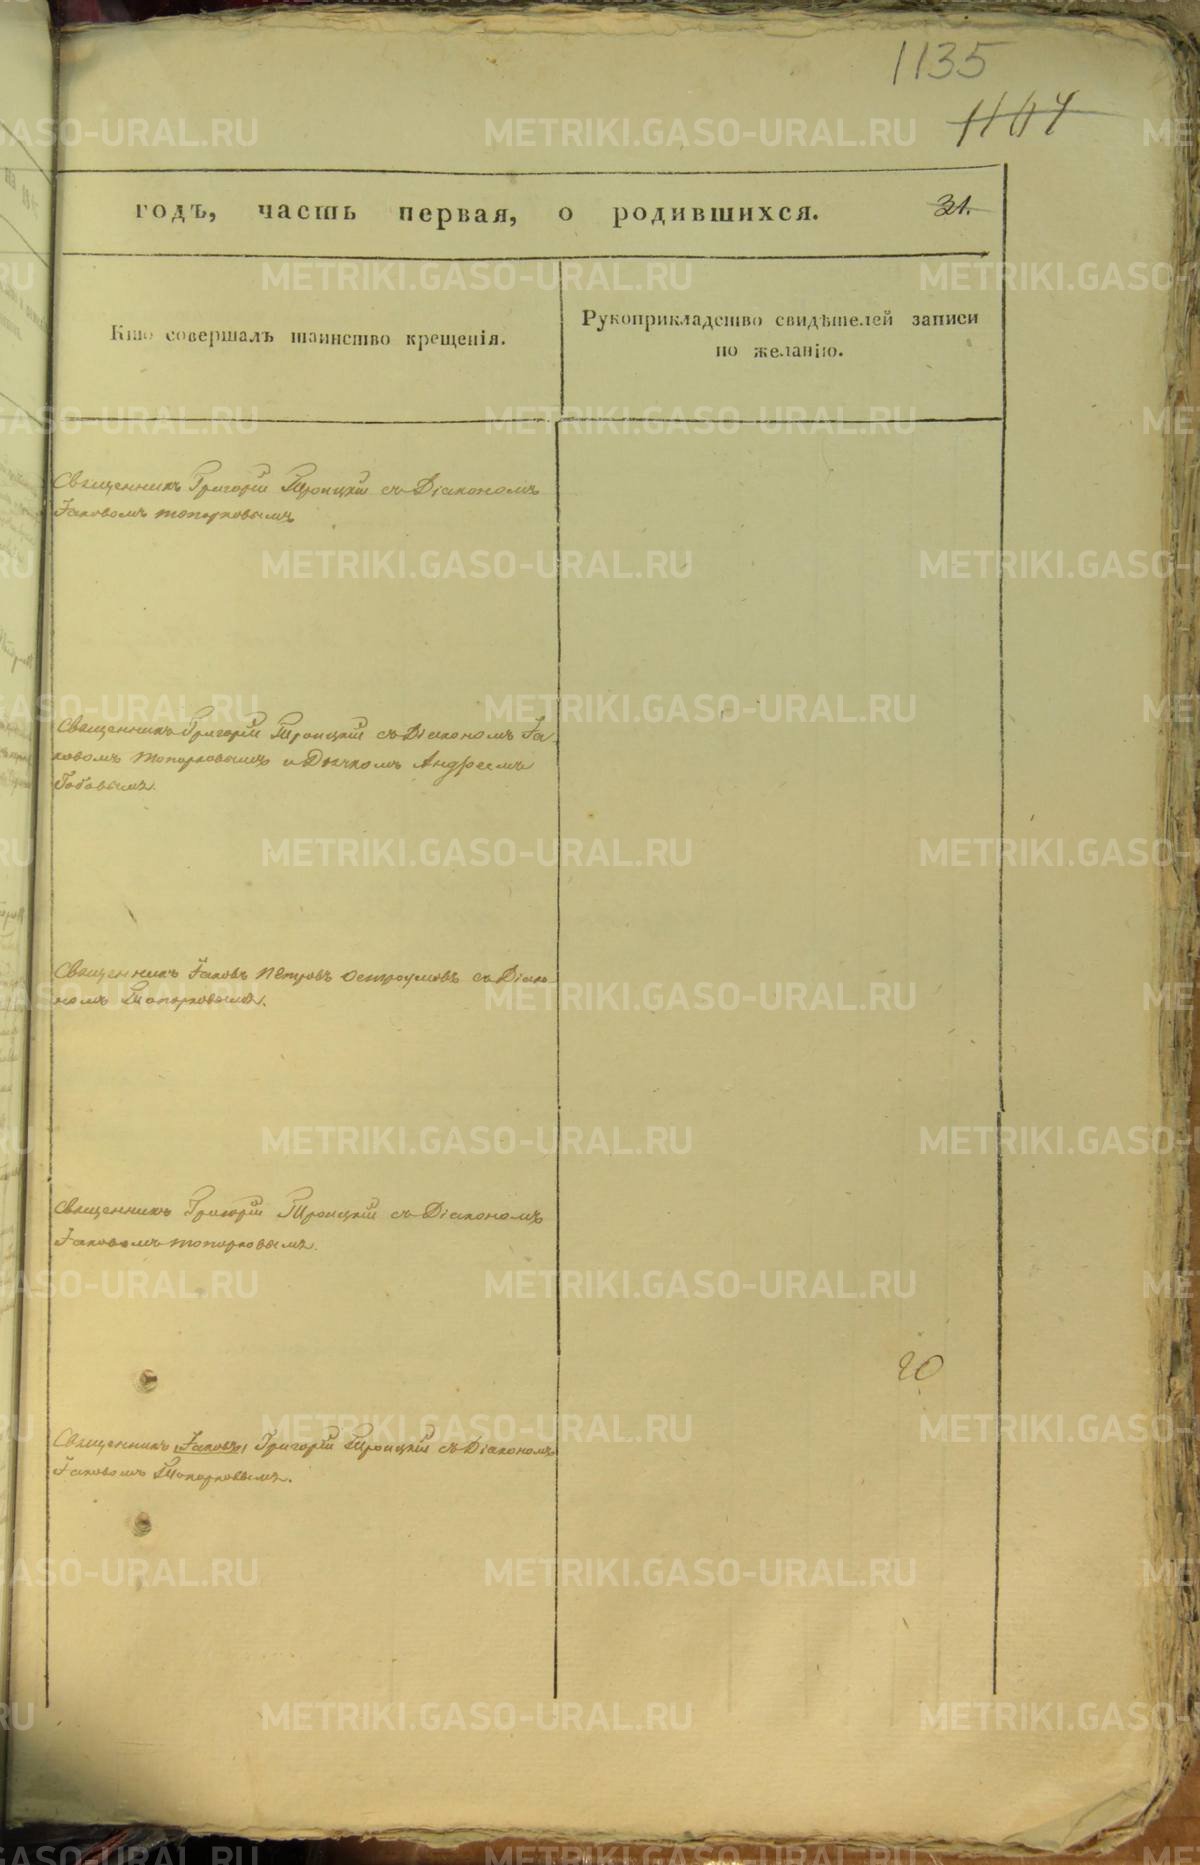 1135
1107
годъ, часть первая, о родившихся. 31.
Кто совершалъ таинство крещенія.
Рукоприкладство свидѣтелей записи
по желанію.
Священникъ Григорій Троицкій съ Діакономъ
Іаковомъ Топорковымъ
Священникъ Григорій Троицкій съ Діакономъ Іа
ковомъ Топорковымъ и Дьячкомъ Андреемъ
Священникъ Іаковъ Петровъ Остроумовъ съ Діако
номъ Топорковымъ.
Священникъ Григорій Троицкій съ Діакономъ
Іаковомъ Топорковымъ.
20
Священникъ (Іаковъ) Григорій Троицкій съ Діакономъ
Іаковомъ Топорковымъ.
METRIKI.GASO-URAL.RU